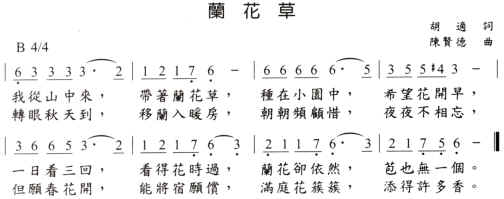 蘭花草
胡適 詞
B 4/4
陳賢德 曲
6 3 3 3 3· 2 | 1 2 1 7 6 － | 6 6 6 6 6· 3 | 3 5 5 #4 3 － |
我從山中來， 帶著蘭花草， 種在小園中， 希望花開早，
轉眼秋天到， 移蘭入暖房， 朝朝頻顧惜， 夜夜不相忘，
3 6 6 5 3· 2 | 1 2 1 7 6 3 | 3 1 1 7 6· 3 | 2 1 7 5 6 －
一日看三回， 看得花時過， 蘭花卻依然， 苞也無一個。
但願春花開， 能將宿願償， 滿庭花簇簇， 添得許多香。